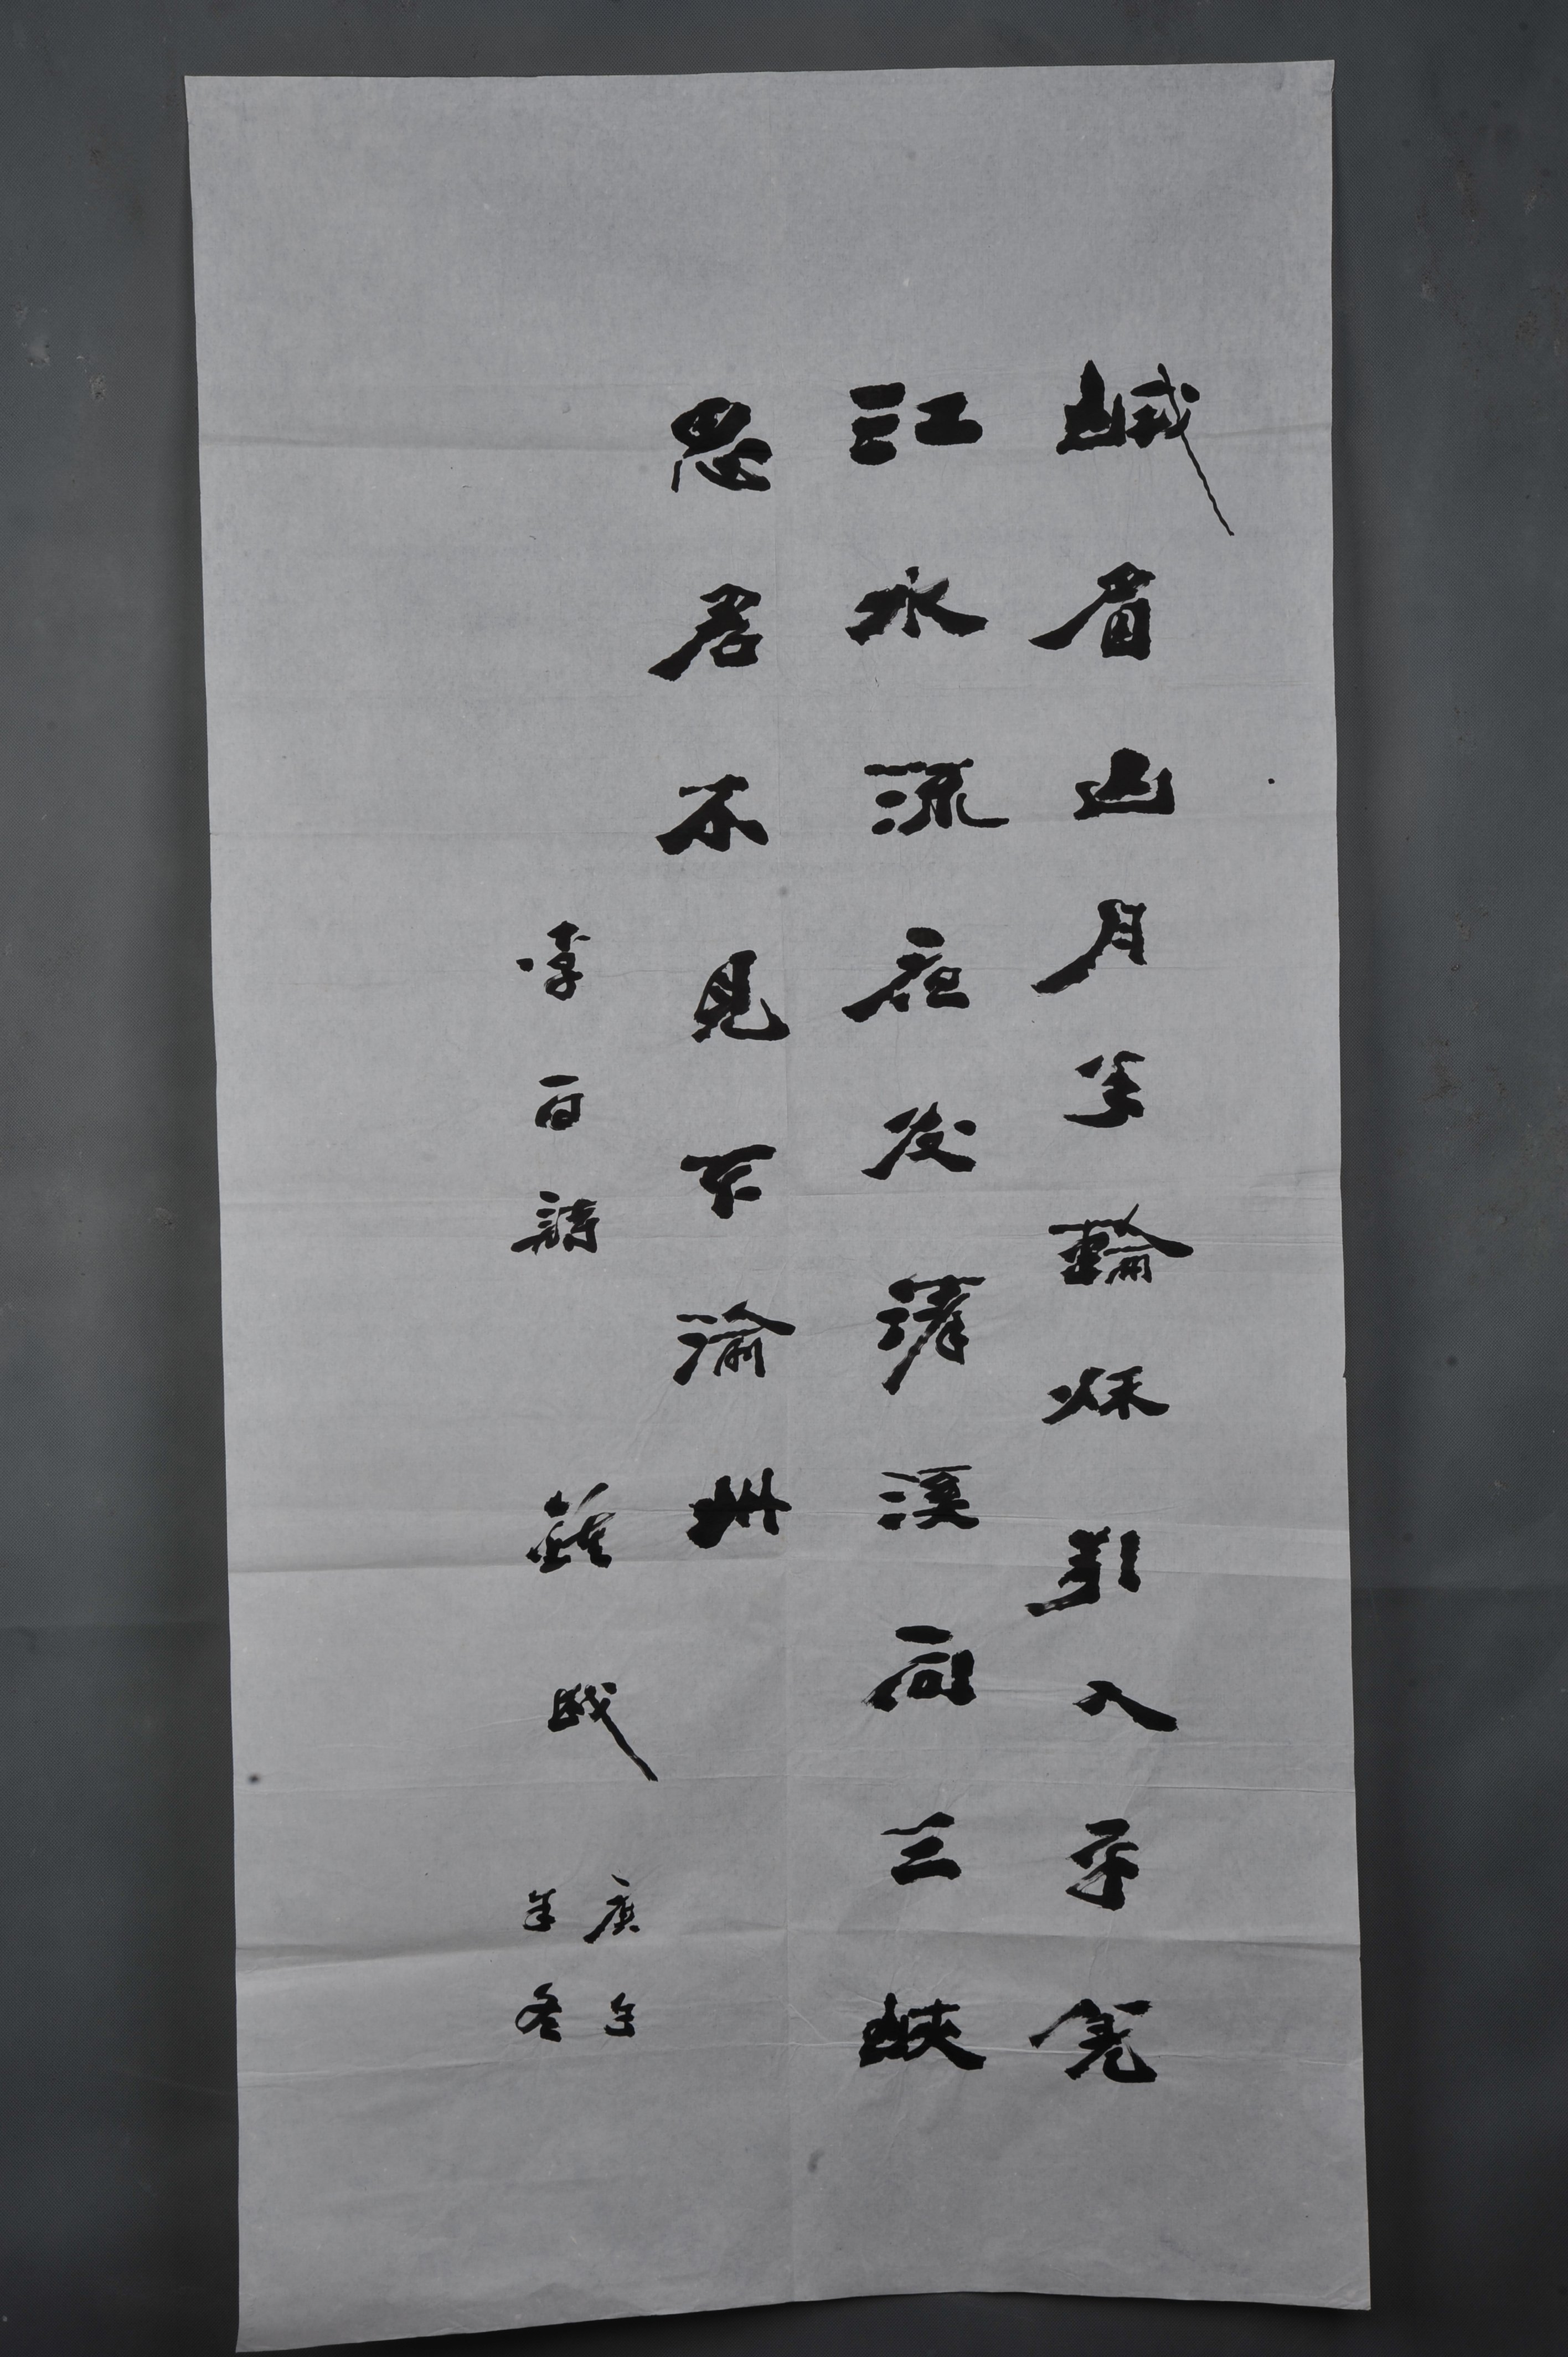 峨眉山月半輪秋影入平羌
江水流夜发清溪向三峡
思君不見下渝州
李白詩
庚
年冬